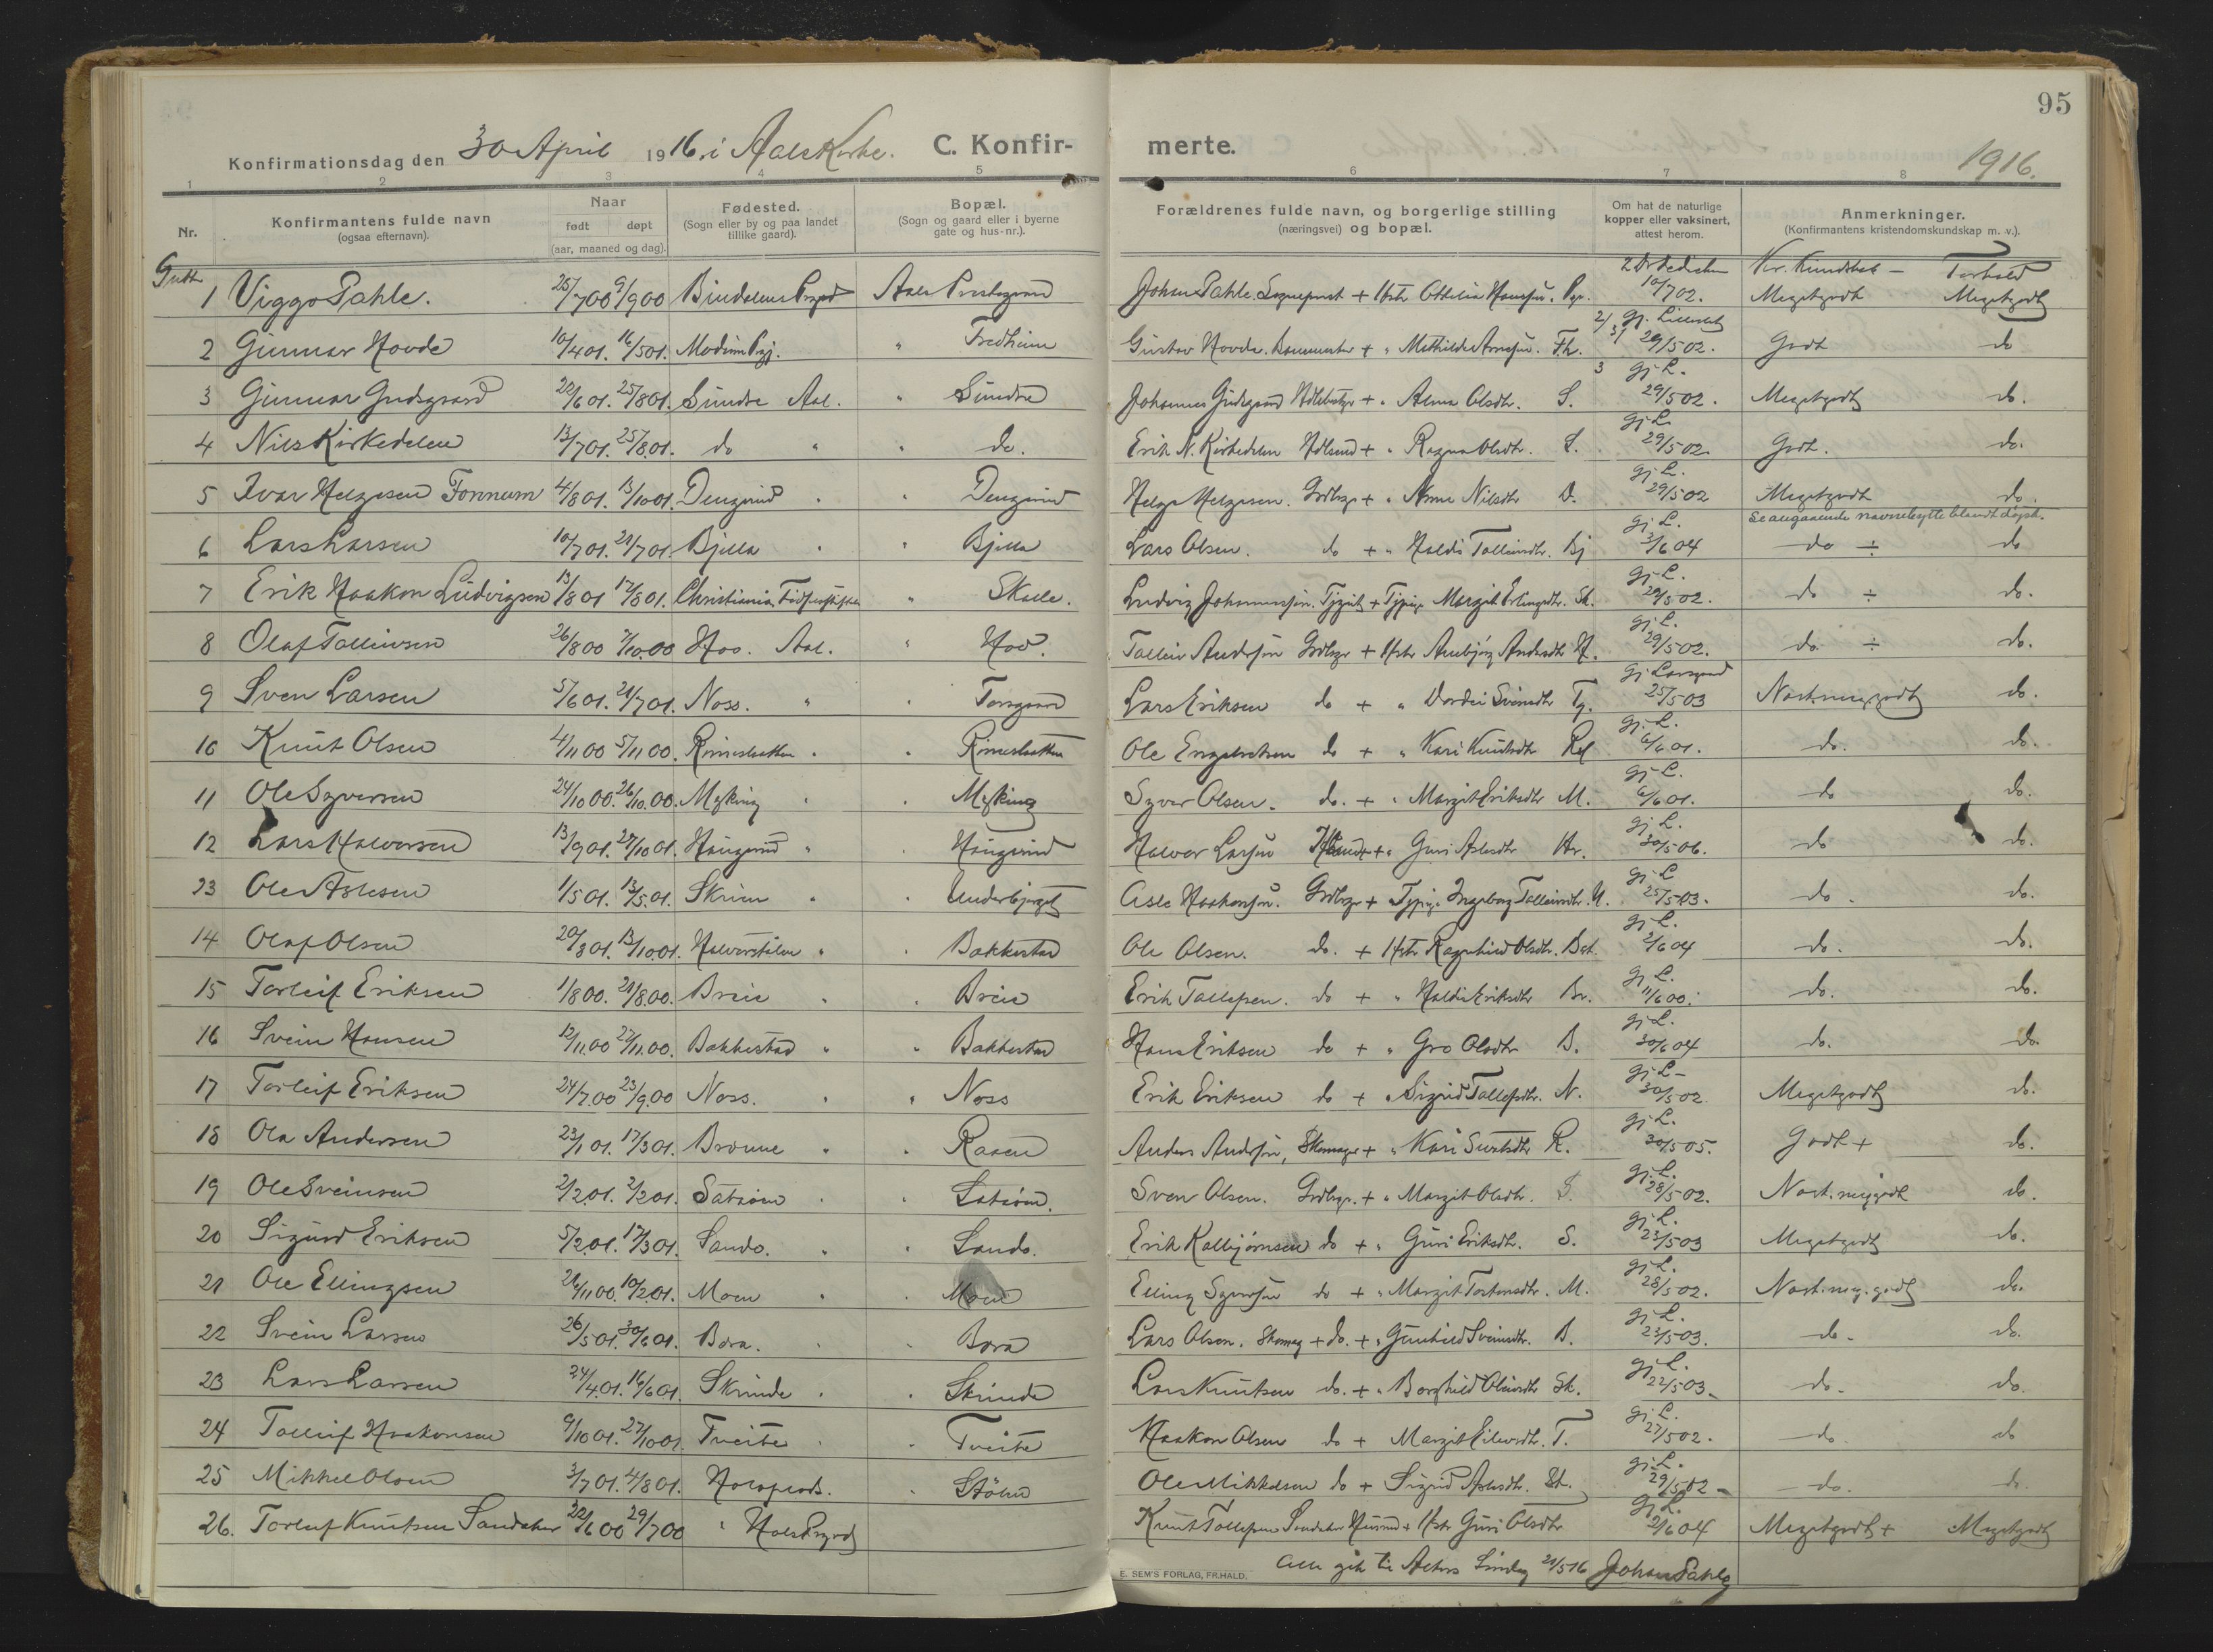 95
Konfirmationsdag den 30 April 1916 i Aals Kirke. C. Konfirmerte. 1916.
1 2 3 4 5 6 7 8
Nr. Konfirmantens fulde navn (ogsaa efternavn). Naar født døpt (aar, maaned og dag). Fødested. (Sogn eller by og paa landet tillike gaard). Bopæl. (Sogn og gaard eller i byerne gate og hus-nr.). Forældrenes fulde navn, og borgerlige stilling (næringsvei) og bopæl. Om hat de naturlige kopper eller vaksinert, attest herom. Anmerkninger. (Konfirmantens kristendomskundskap m. v.).
Gutter Kr. Kundskab – Forhold
1 Viggo Pahle. 25/7 00 9/9 00 Bindalens Prgjd Aals Prestegaard Johan Pahle. Sogneprest + Hstr Ottilia Hansen. Pgr. 10/7 02. Megetgodt Megetgodt
2 Gunnar Hovde 10/4 01. 16/5 01. Modum Prgj. " Fredheim Gustav Hovde. + " Mathilde Arnesen. Fh. gj. 29/5 02. Godt do
3 Gunnar Gudsgaard 22/6 01. 25/8 01. Sundre Aal. " Sundre Johannes Gudsgaard + " Alma Olsdtr. S. gj. L. 29/5 02. Megetgodt do.
4 Nils Kirkedelen 13/7 01. 25/8 01. do " " do. Erik N. Kirkedelen + " Ragna Olsdtr. S. gj. L. 29/5 02. Godt. do.
5 Ivar Helgesen Fonnum 4/8 01. 13/10 01. Dengerud " " Dengerud Helge Helgesen. Grdbrgr + " Anne Nilsdtr D. gj. L. 29/5 02 Megetgodt do.
Se angaaende navnebytte blandt døpt.
6 Lars Larsen 10/7 01. 21/7 01. Bjella " " Bjella Lars Olsen. do + " Haldis Tolleivsdtr. Bj gj. L. 3/6 04 do ÷ do
7 Erik Haakon Ludvigsen 13/8 01 17/8 01. Christiania Fødselsstiftelse " Skalle. Ludvig Johannessen. + Tjpige Margit Erlingsdtr. Sk. gj. L. 29/5 02. do ÷ do.
8 Olaf Tolleivsen 26/8 00 7/10 00 Hov. Aal. " Hov. Tolleiv Andersen Grdbrgr + Hstr Anbjørg Andersdtr H. gj. L. 29/5 02. do. ÷ do.
9 Sven Larsen 5/6 01. 21/7 01. Noss. " " Torsgaard Lars Eriksen do + " Dordei Svensdtr Tg. gj. 25/5 03 Nost. meg. godt do.
10 Knut Olsen 4/11 00 5/11 00. Rimeslaatten " " Rimeslaatten Ole Engebretsen do + " Kari Knutsdtr Rsl gj. L. 6/6 01. do. do.
11 Ole Syversen 24/10 00. 26/10. 00. Myking " " Myking Syver Olsen. do. + " Margit Eriksdtr M. gj. L. 6/6 01. do do.
12 Lars Halvorsen 13/9 01. 27/10 01. Haugerud " " Haugerud Halvor Larsen + " Guri Aslesdtr Hr. gj. L. 30/5 06. do do.
23 Ole Aslesen 1/5 01. 13/5. 01. Skrien " " Underbjerget Asle Haakonsen. Grdbrgr + Tjpige Ingeborg Tolleivsdtr. U. gj. L 25/5 03. do. do.
14 Olaf Olsen 20/8 01. 13/10 01. " " Bakkestad Ole Olsen. do. + Hstr Ragnhild Olsdtr. Bst. gj. L. 2/6 04 do. do.
15 Torleif Eriksen 1/8 00. 21/8 00. Breie " " Breie Erik Tollefsen. do + " Haldis Eriksdtr Br. gj. L. 11/6 00. do. do.
16 Svein Hansen 12/11. 00 22/11. 00. Bakkestad " " Bakkestad Hans Eriksen do + " Gro Olsdtr B. gj. L. 30/6 04 do. do.
17 Torleif Eriksen 24/7. 00 23/9. 00 Noss. " " Noss Erik Eriksen do + " Sigrid Tollefsdtr. N. gj. L. 30/5 02. Megetgodt do.
18 Ola Andersen 23/1 01. 17/3 01. " " Raaen Anders Andersen, Skomager + " Kari R. gj. L. 30/5 05. Godt + do.
19 Ole Sveinsen 2/2 01. 2/2 01. Sataøen " " Sataøen. Sven Olsen. Grdbrgr. + " Margit Olsdtr. S. gj. L. 28/5 02. Nost. meg godt do.
20 Sigurd Eriksen 5/2 01. 17/3 01. Sando. " " Sando. Erik Kolbjørnsen do + " Guri Eriksdtr. S. gj. L. 23/5 03 Megetgodt do.
21 Ole Ellingsen 26/11 00. 10/2 01. Moen " " Moen Elling Syversen do + " Margit Torstensdtr. M. gj. L. 28/5 02. Nost. meg. godt do.
22 Svein Larsen 26/5 01. 30/6 01. Børa. " " Børa Lars Olsen. Skomag + do. + " Gunhild Sveinsdtr. B. gj. L. 23/5 03. do. do.
23 Lars Larsen 24/4. 01. 16/6 01. Skrinde " " Skrinde Lars Knutsen do. + " Borghild Sk. gj. L. 22/5 03. do. do.
24 Tolleif Haakonsen 9/10 01. 27/10 01. Tveite " " Tveite Haakon Olsen do + Margit Eilevsdtr. T. gj. L. 27/5 02. do. do
25 Mikkel Olsen 3/7 01. 4/8 01. " Stølen Ole Mikkelsen do + Sigrid Aslesdtr. St. gj. L. 29/5 02 do. do.
26. Torleif Knutsen Sandaker 22/6 00 29/7 00 " Hols Prgjd Knut Tollefsen Sandaker + Hstr Guri Olsdtr gj. L. 2/6 04 Megetgodt + Megetgodt
E. SEM'S FORLAG, FR.HALD. Alle gik til Alters Søndag 21/5 16 Johan Pahle